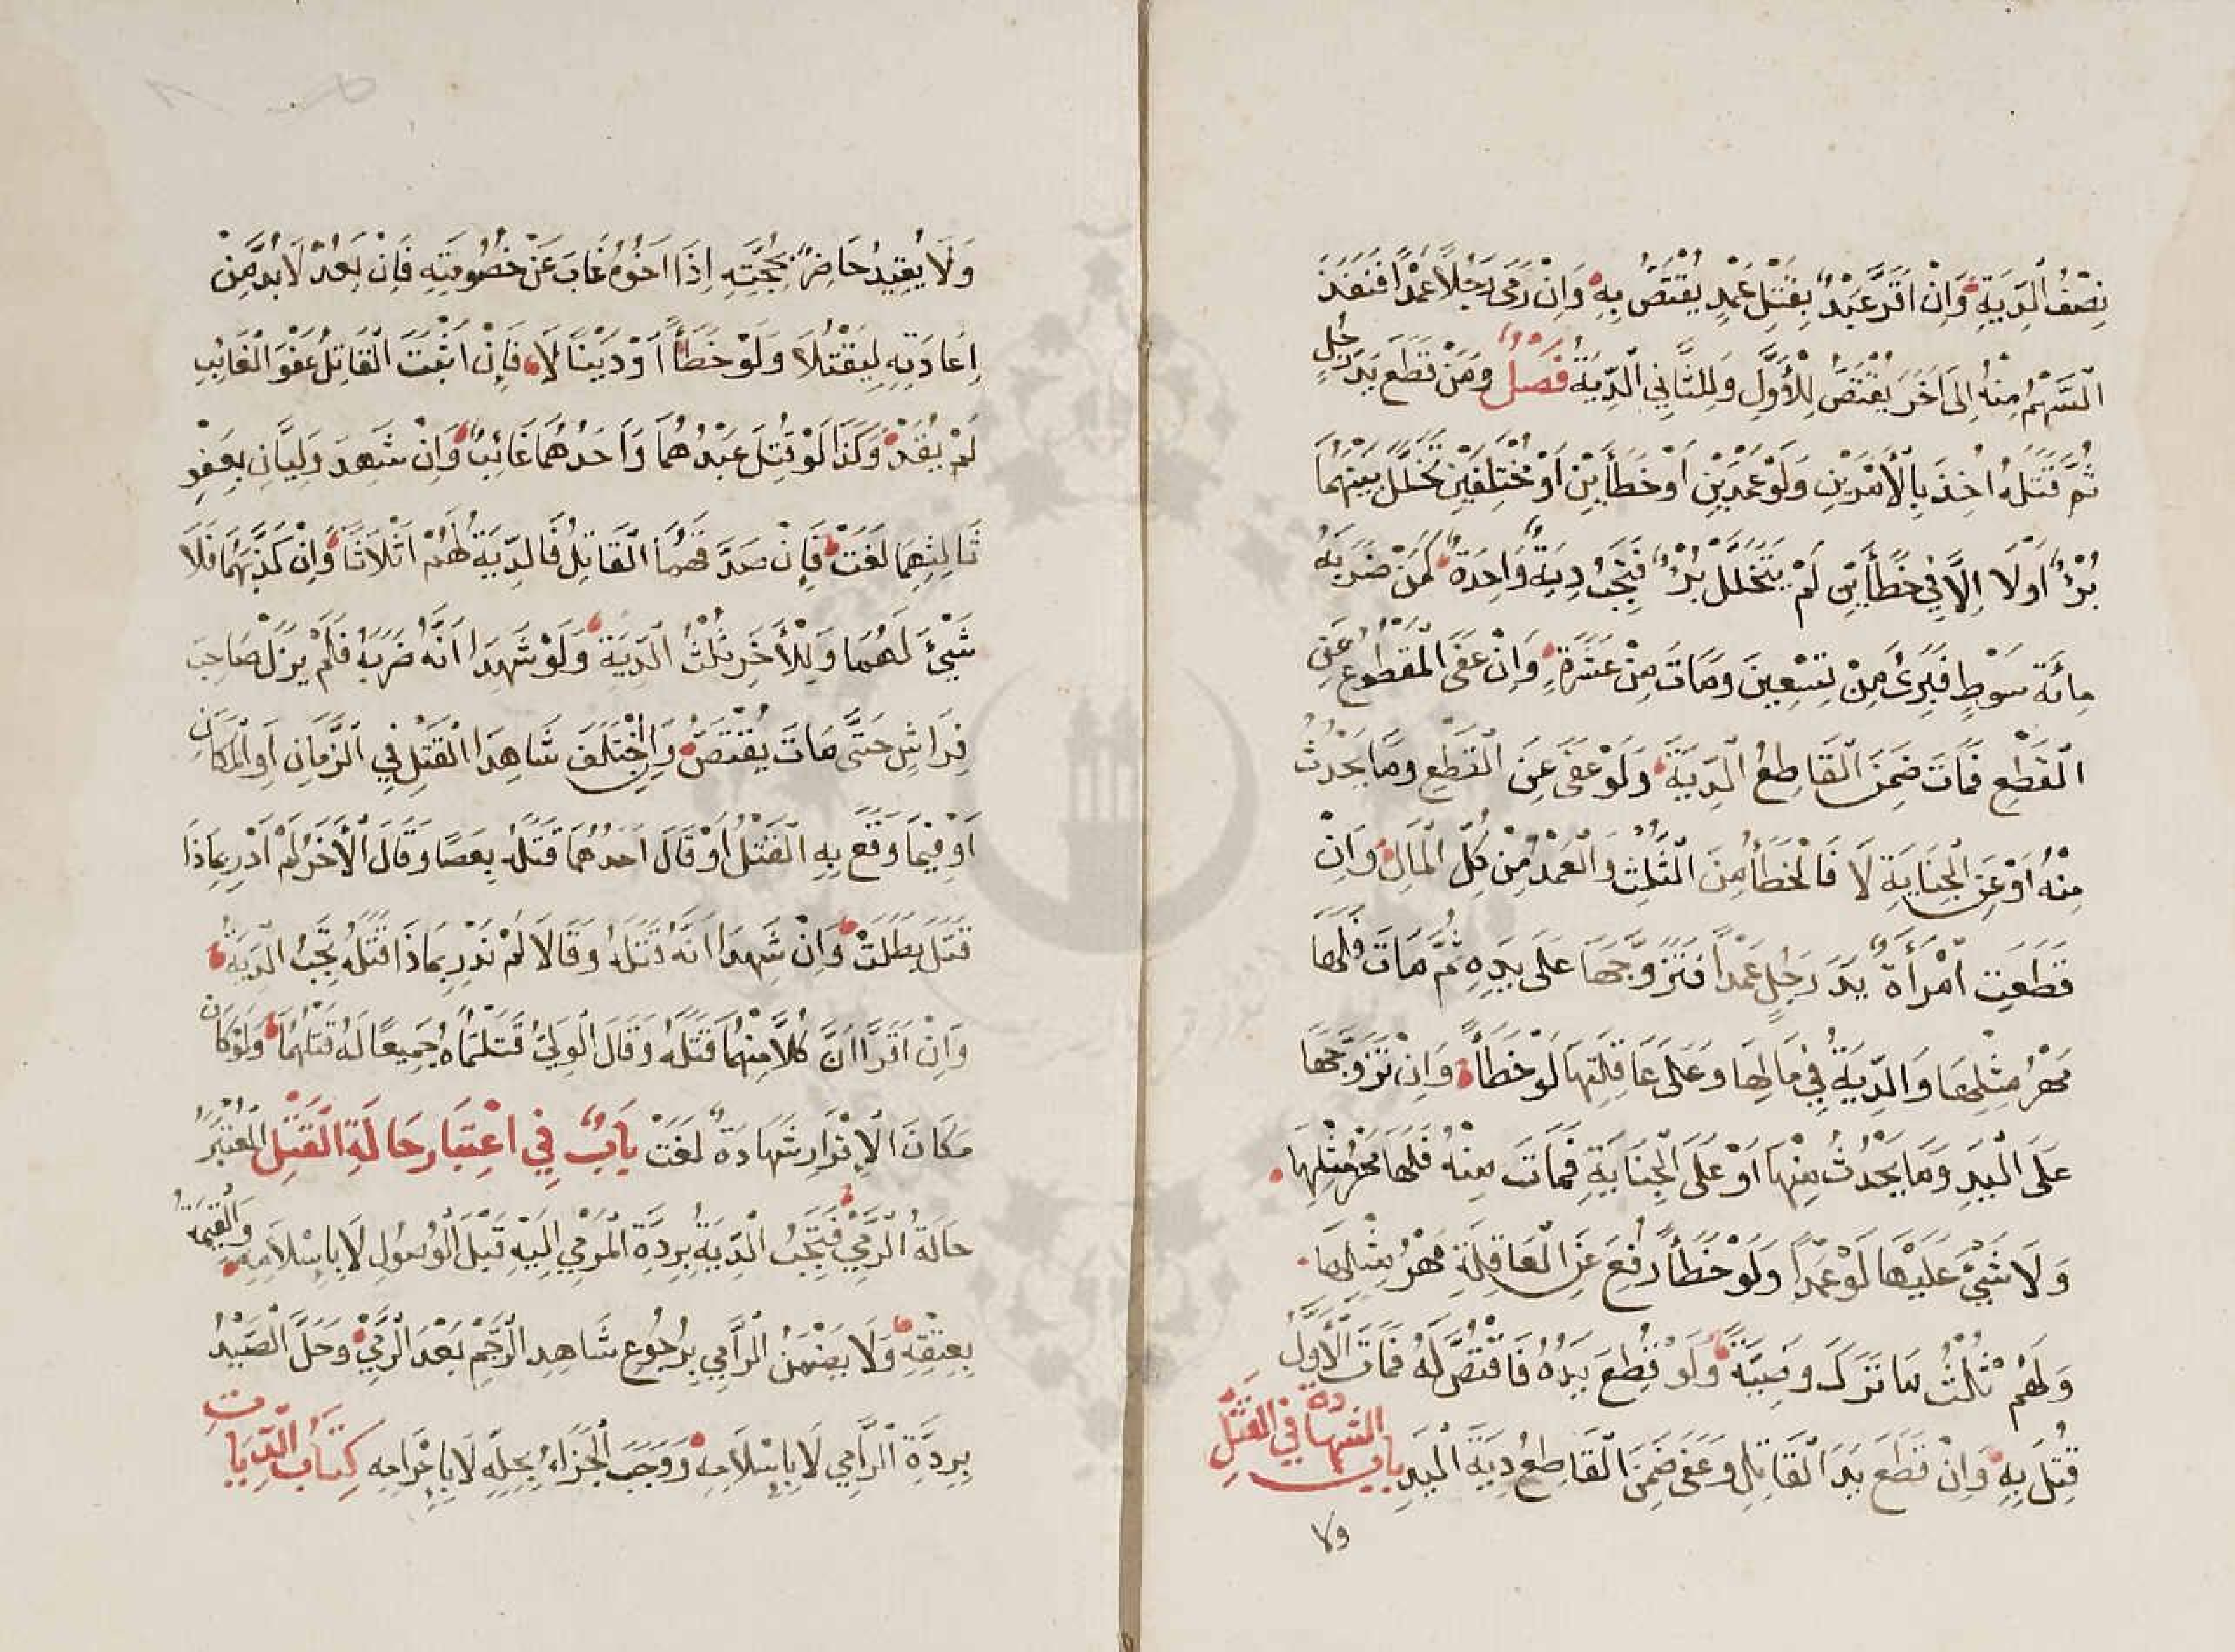 نِصْفُ الدِّيَةِ وَإِنْ أَقَرَّ عَبْدٌ بِقَتْلِ عَمْدٍ يُقْتَصُّ بِهِ وَإِنْ رَمَى رَجُلًا عَمْدًا فَنَفَذَ
السَّهْمُ مِنْهُ إِلَى آخَرَ يُقْتَصُّ لِلْأَوَّلِ وَلِلثَّانِي الدِّيَةُ فَصْلٌ وَمَنْ قَطَعَ يَدَ رَجُلٍ
ثُمَّ قَتَلَهُ أُخِذَ بِالْأَمْرَيْنِ وَلَوْ عَمْدَيْنِ أَوْ خَطَأَيْنِ أَوْ مُخْتَلِفَيْنِ تَخَلَّلَ بَيْنَهُمَا
بُرْءٌ أَوْ لَا إِلَّا فِي خَطَأَيْنِ لَمْ يَتَخَلَّلْ بُرْءٌ فَتَجِبُ دِيَةٌ وَاحِدَةٌ كَمَنْ ضَرَبَهُ
مِائَةَ سَوْطٍ فَبَرِئَ مِنْ تِسْعِينَ وَمَاتَ مِنْ عَشَرَةٍ وَإِنْ عَفَى الْمَقْطُوعُ عَنِ
الْقَطْعِ فَمَاتَ ضَمِنَ الْقَاطِعُ الدِّيَةَ وَلَوْ عَفَى عَنِ الْقَطْعِ وَمَا يَحْدُثُ
مِنْهُ أَوْ عَنِ الْجِنَايَةِ لَا فَالْخَطَأُ مِنَ الثُّلُثِ وَالْعَمْدُ مِنْ كُلِّ الْمَالِ وَإِنْ
قَطَعَتِ امْرَأَةٌ يَدَ رَجُلٍ عَمْدًا فَتَزَوَّجَهَا عَلَى يَدِهِ ثُمَّ مَاتَ فَلَهَا
مَهْرُ مِثْلِهَا وَالدِّيَةُ فِي مَالِهَا وَعَلَى عَاقِلَتِهَا لَوْ خَطَأً وَإِنْ تَزَوَّجَهَا
عَلَى الْيَدِ وَمَا يَحْدُثُ مِنْهَا أَوْ عَلَى الْجِنَايَةِ فَمَاتَ مِنْهُ فَلَهَا مَهْرُ مِثْلِهَا
وَلَا شَيْءَ عَلَيْهَا لَوْ عَمْدًا وَلَوْ خَطَأً رُفِعَ عَنِ الْعَاقِلَةِ مَهْرُ مِثْلِهَا
وَلَهُمْ ثُلُثُ مَا تَرَكَ وَصِيَّةً وَلَوْ قُطِعَ يَدُهُ فَاقْتُصَّ لَهُ فَمَاتَ الْأَوَّلُ
قُتِلَ بِهِ وَإِنْ قَطَعَ يَدَ الْقَاتِلِ وَعَفَى ضَمِنَ الْقَاطِعُ دِيَةَ الْيَدِ بَابُ الشَّهَادَةِ فِي الْقَتْلِ
ولا
وَلَا يُقِيدُ حَاضِرٌ بِحُجَّتِهِ إِذَا أَخُوهُ غَابَ عَنْ خُصُومَتِهِ فَإِنْ يَعُدْ لَا بُدَّ مِنْ
إِعَادَتِهِ لِيَقْتُلَا وَلَوْ خَطَأً أَوْ دَيْنًا لَا فَإِنْ أَثْبَتَ الْقَاتِلُ عَفْوَ الْغَائِبِ
لَمْ يُقَدْ وَكَذَا لَوْ قُتِلَ عَبْدُهُمَا وَأَحَدُهُمَا غَائِبٌ وَإِنْ شَهِدَ وَلِيَّانِ بِعَفْوِ
ثَالِثِهِمَا لَغَتْ فَإِنْ صَدَّقَهُمَا الْقَاتِلُ فَالدِّيَةُ لَهُمْ أَثْلَاثًا وَإِنْ كَذَّبَهُمَا فَلَا
شَيْءَ لَهُمَا وَلِلْآخَرِ ثُلُثُ الدِّيَةِ وَلَوْ شَهِدَا أَنَّهُ ضَرَبَهُ فَلَمْ يَزَلْ صَاحِبَ
فِرَاشٍ حَتَّى مَاتَ يُقْتَصُّ وَإِنِ اخْتَلَفَ شَاهِدَا الْقَتْلِ فِي الزَّمَانِ أَوِ الْمَكَانِ
أَوْ فِيمَا وَقَعَ بِهِ الْقَتْلُ أَوْ قَالَ أَحَدُهُمَا قَتَلَهُ بِعَصًا وَقَالَ الْآخَرُ لَمْ أَدْرِ بِمَاذَا
قَتَلَ بَطَلَتْ وَإِنْ شَهِدَا أَنَّهُ قَتَلَهُ وَقَالَا لَمْ نَدْرِ بِمَاذَا قَتَلَهُ تَجِبُ الدِّيَةُ
وَإِنْ أَقَرَّا أَنَّ كُلًّا مِنْهُمَا قَتَلَهُ وَقَالَ الْوَلِيُّ قَتَلْتُمَاهُ جَمِيعًا لَهُ قَتْلُهُمَا وَلَوْ كَانَ
مَكَانَ الْإِقْرَارِ شَهَادَةٌ لَغَتْ بَابٌ فِي اعْتِبَارِ حَالَةِ الْقَتْلِ الْمُعْتَبَرُ
حَالَةُ الرَّمْيِ فَتَجِبُ الدِّيَةُ بِرِدَّةِ الْمَرْمِيِّ إِلَيْهِ قَبْلَ الْوُصُولِ لَا بِإِسْلَامِهِ وَالْقِيمَةُ
بِعِتْقِهِ وَلَا يَضْمَنُ الرَّامِي بِرُجُوعِ شَاهِدِ الرَّجْمِ بَعْدَ الرَّمْيِ وَحَلَّ الصَّيْدُ
بِرِدَّةِ الرَّامِي لَا بِإِسْلَامِهِ وَوَجَبَ الْجَزَاءُ بِحِلِّهِ لَا بِإِحْرَامِهِ كِتَابُ الدِّيَاتِ